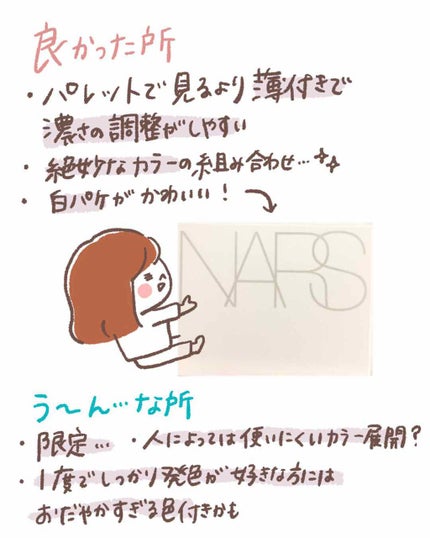 良かった所
・パレットで見るより薄付きで
濃さの調整がしやすい
・絶妙なカラーの組み合わせ…
・白パケがかわいい！
NARS
う〜ん…な所
・限定… ・人によっては使いにくいカラー展開？
・1度でしっかり発色が好きな方には
おだやかすぎる色付きかも